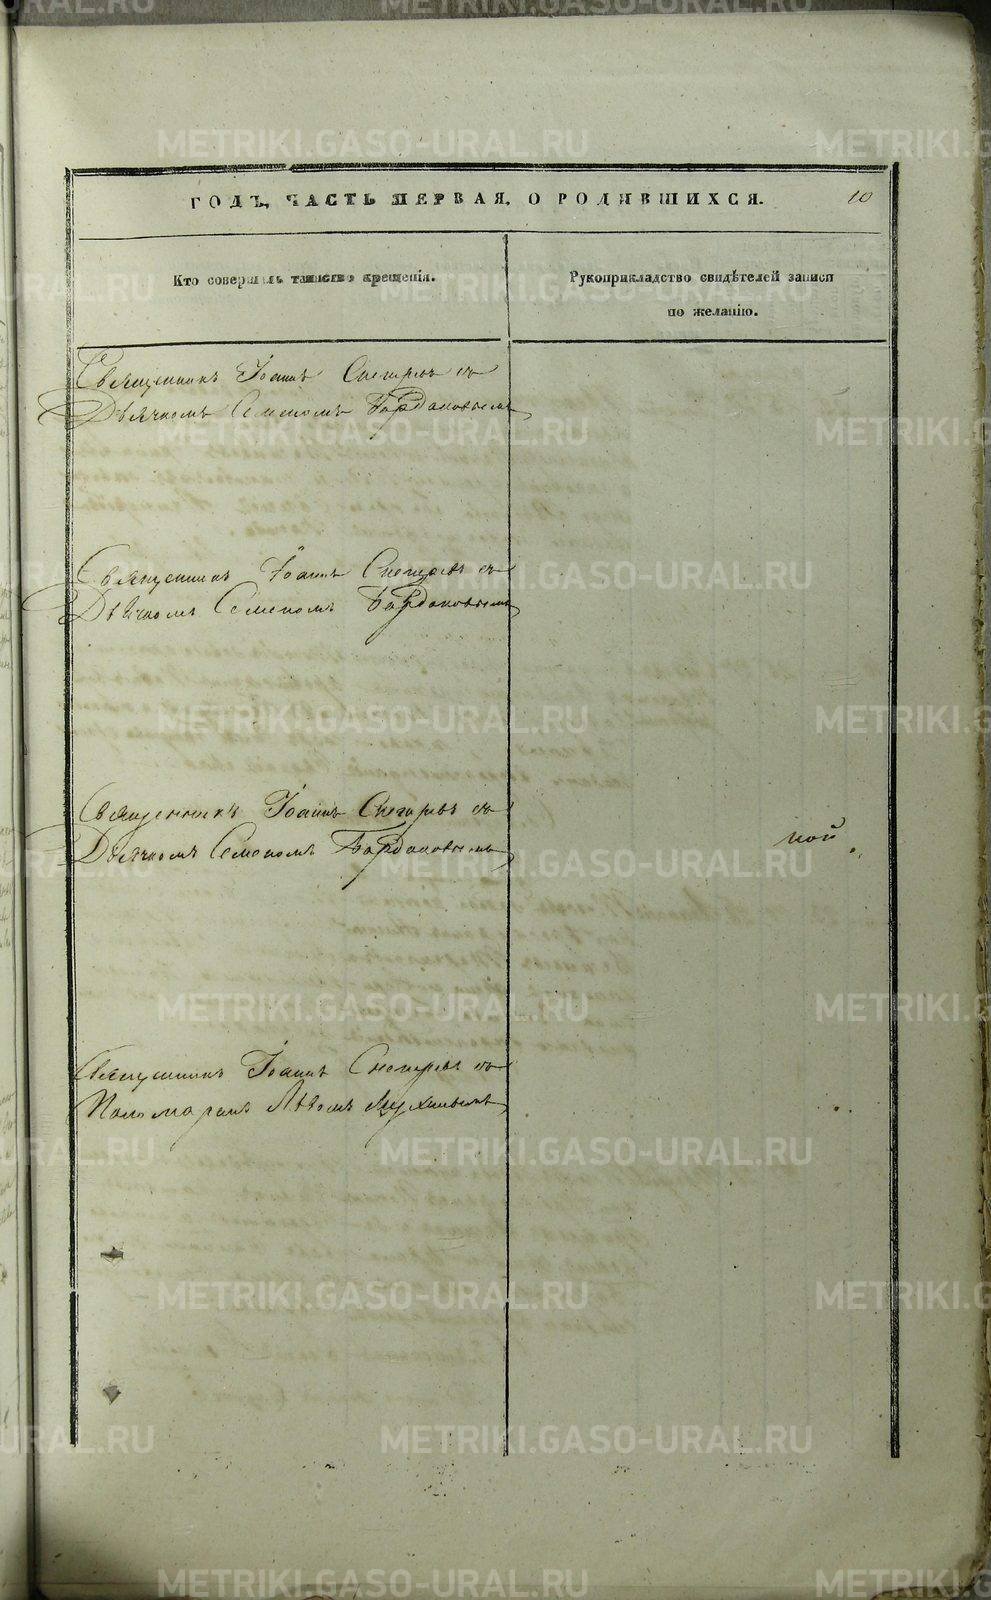 ГОДЪ, ЧАСТЬ ПЕРВАЯ, О РОДИВШИХСЯ.
10
Кто совершалъ таинство крещенія.
Рукоприкладство свидѣтелей записи
по желанію.
Священникъ Іоаннъ Снегиревъ съ
Дьячкомъ Семеномъ Бардаковымъ
Священникъ Іоаннъ Снегиревъ съ
Дьячкомъ Семеномъ Бардаковымъ
Священникъ Іоаннъ Снегиревъ съ
Дьячкомъ Семеномъ Бардаковымъ
ной
Священникъ Іоаннъ Снегиревъ съ
Пономаремъ Львомъ
METRIKI.GASO-URAL.RU